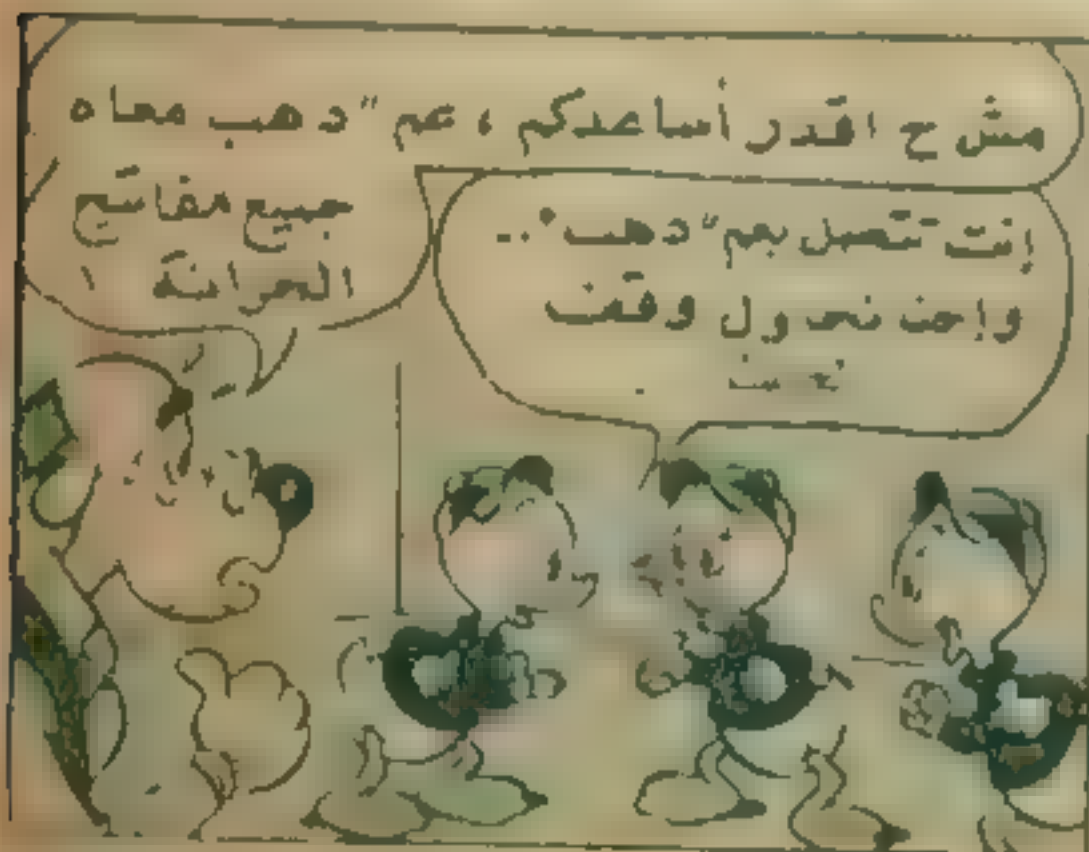 مش ح اقدر أساعدكم ، عم "دهب معاه
جميع مفاتيح
الخزانة !
إنت تتصل بعم "دهب" ..
وإحنا نحاول وقف